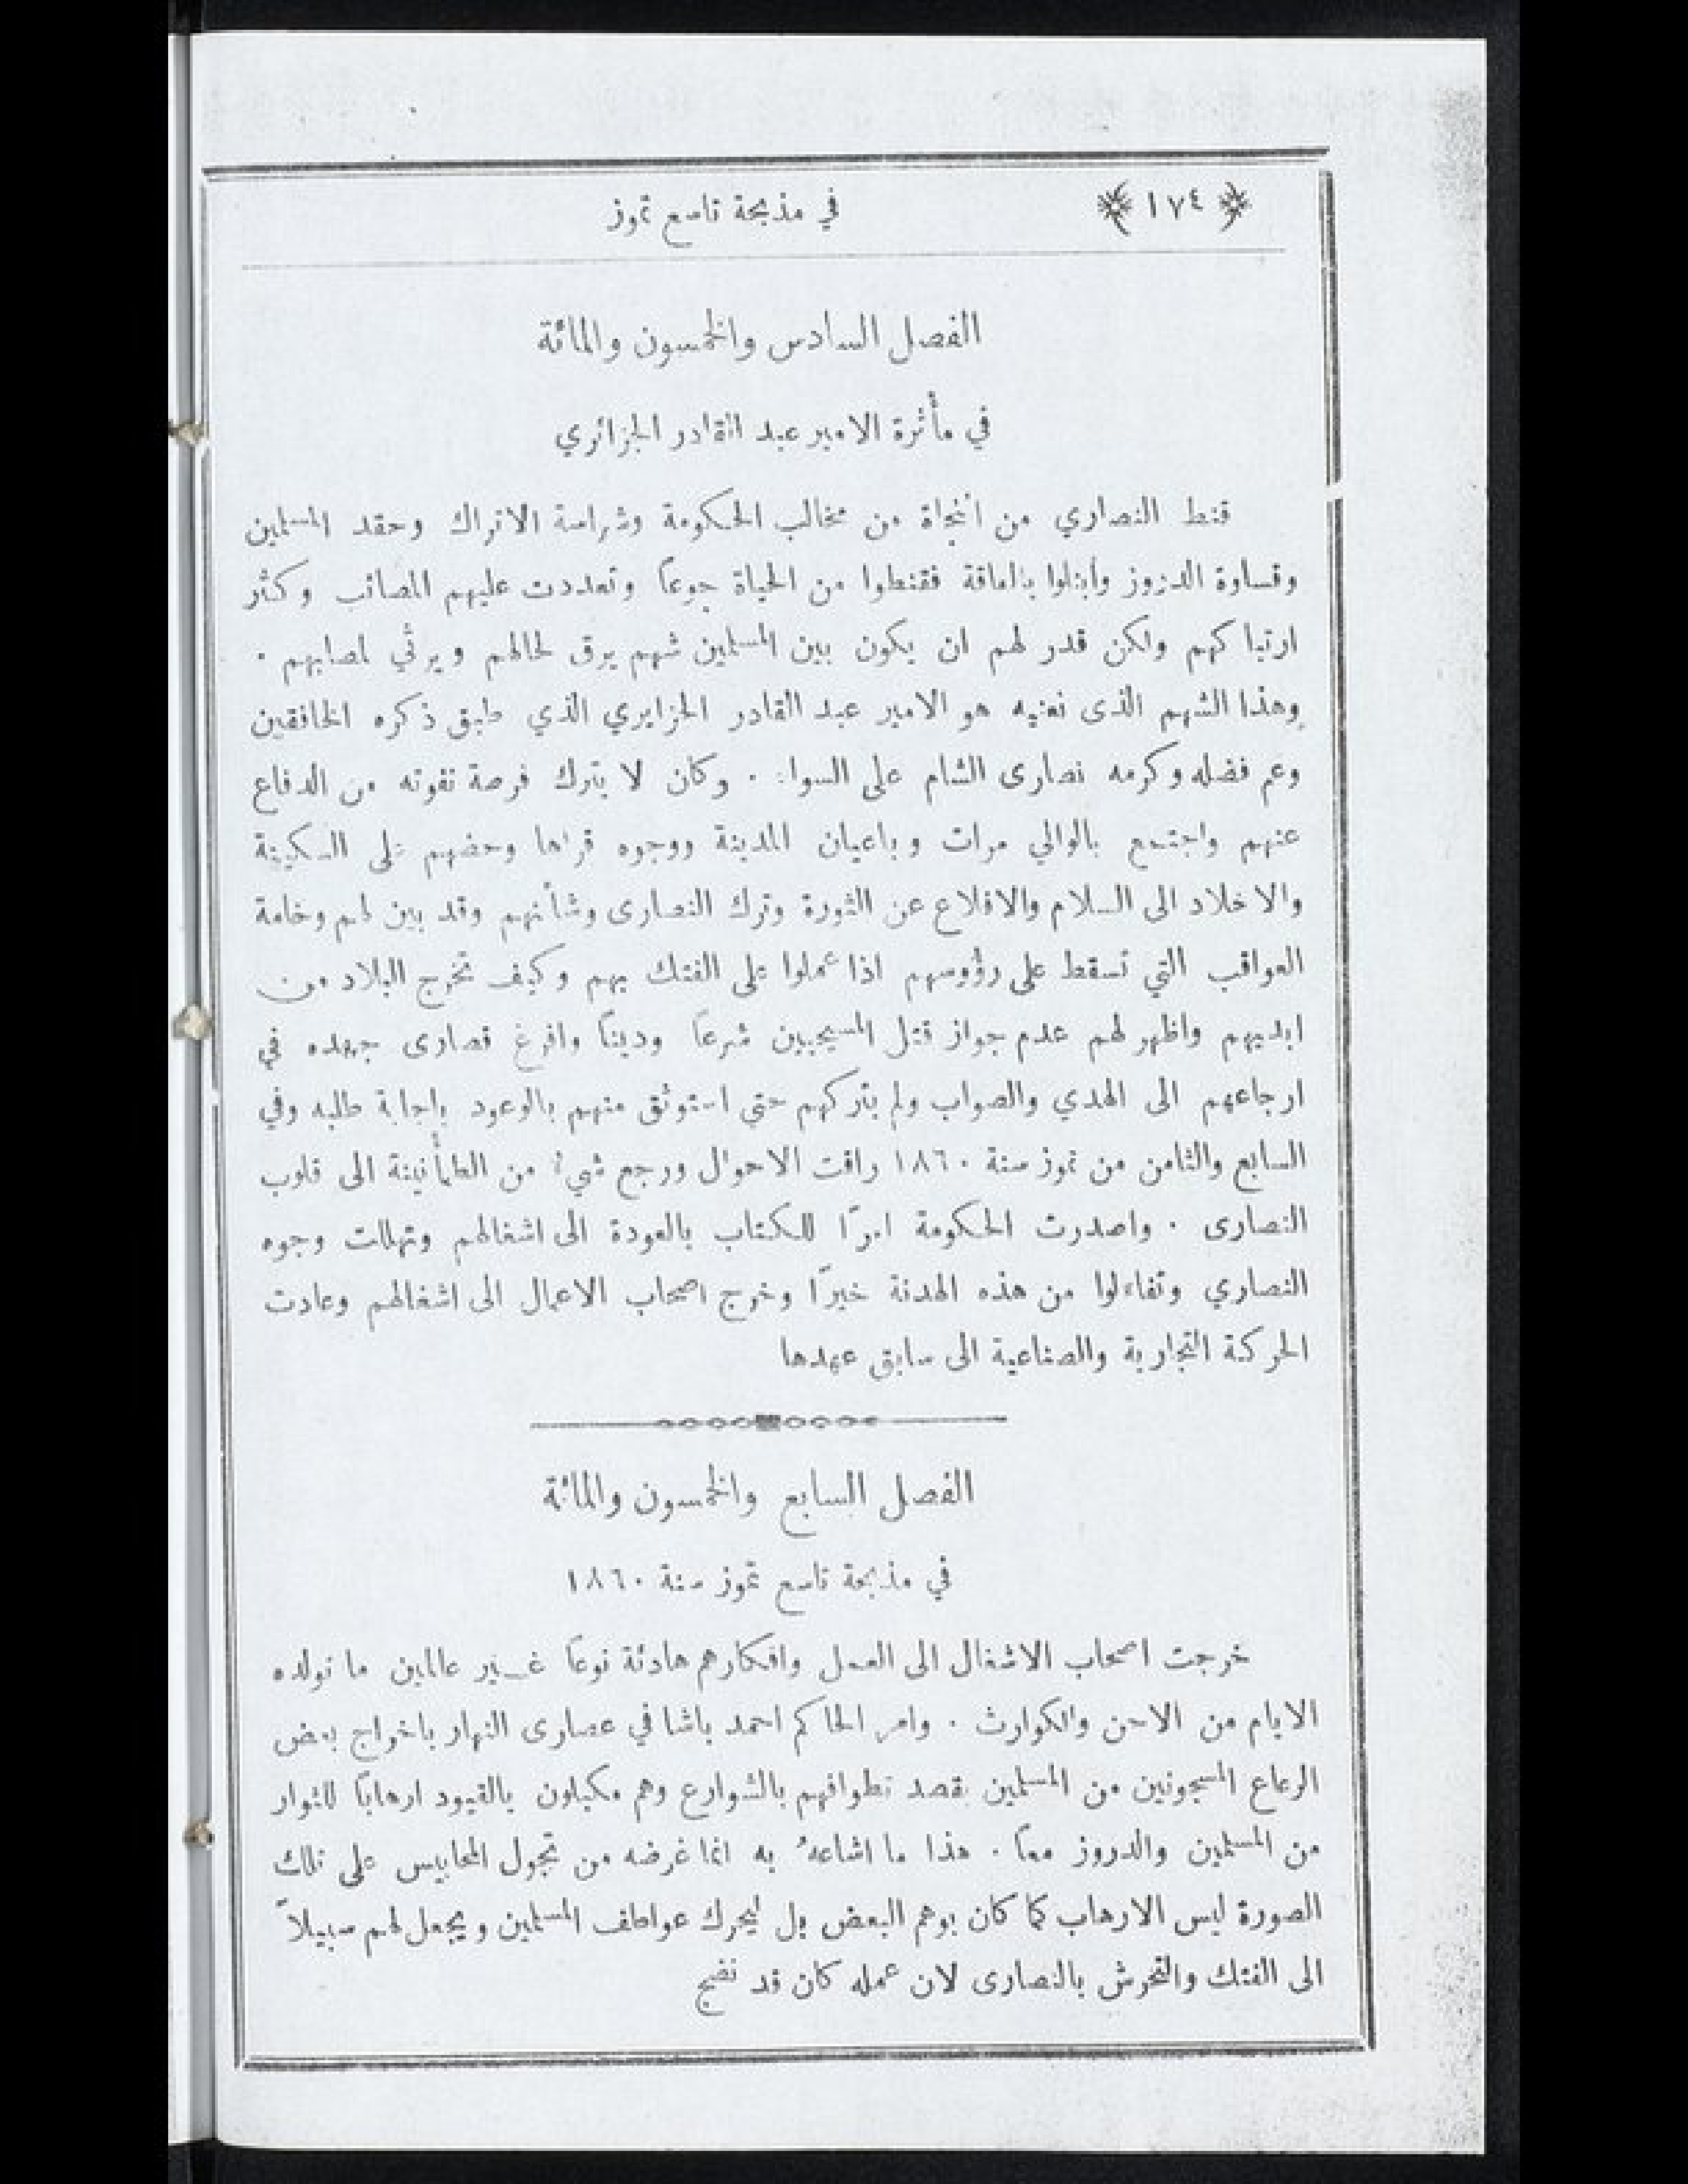 ﴿ ١٧٤ ﴾ في مذبحة تاسع تموز
الفصل السادس والخمسون والمائة
في مأثرة الامير عبد القادر الجزائري
قنط النصاري من النجاة من مخالب الحكومة وشراسة الاتراك وحقد المسلمين
وقساوة الدروز وابتلوا بالفاقة فقنطوا من الحياة جوعاً وتعددت عليهم المصائب وكثر
ارتباكهم ولكن قدر لهم ان يكون بين المسلمين شهم يرق لحالهم ويرثي لمصابهم .
وهذا الشهم الذى نعنيه هو الامير عبد القادر الجزايري الذي طبق ذكره الخافقين
وعم فضله وكرمه نصارى الشام على السواء . وكان لا يترك فرصة تفوته من الدفاع
عنهم واجتمع بالوالي مرات وباعيان المدينة ووجوه قراها وحضهم على السكينة
والاخلاد الى السلام والاقلاع عن الثورة وترك النصارى وشأنهم وقد بين لهم وخامة
العواقب التي تسقط على رؤوسهم اذا عملوا على الفتك بهم وكيف تخرج البلاد من
ايديهم واظهر لهم عدم جواز قتل المسيحيين شرعاً وديناً وافرغ قصارى جهده في
ارجاعهم الى الهدي والصواب ولم يتركهم حتي استوثق منهم بالوعود باجابة طلبه وفي
السابع والثامن من تموز سنة ١٨٦٠ راقت الاحوال ورجع شيء من الطمأنينة الى قلوب
النصارى . واصدرت الحكومة امرًا للكتاب بالعودة الى اشغالهم وتهللت وجوه
النصاري وتفاءلوا من هذه الهدنة خيرًا وخرج اصحاب الاعمال الى اشغالهم وعادت
الحركة التجارية والصناعية الى سابق عهدها
الفصل السابع والخمسون والمائة
في مذبحة تاسع تموز سنة ١٨٦٠
خرجت اصحاب الاشغال الى العمل وافكارهم هادئة نوعاً غير عالمين ما تولده
الايام من الاحن والكوارث . وامر الحاكم احمد باشا في عصارى النهار باخراج بعض
الرعاع المسجونين من المسلمين بقصد تطوافهم بالشوارع وهم مكبلون بالقيود ارهاباً للثوار
من المسلمين والدروز معاً . هذا ما اشاعهُ به انما غرضه من تجول المحابيس على تلك
الصورة ليس الارهاب كما كان يوهم البعض بل ليحرك عواطف المسلمين ويجعل لهم سبيلاً
الى الفتك والتحرش بالنصارى لان عمله كان قد نضج